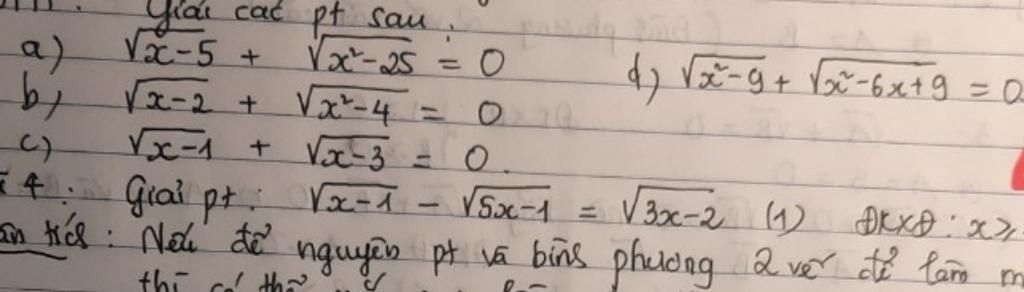 Giải các pt sau.
a) √(x-5) + √(x²-25) = 0
d) √(x²-9) + √(x²-6x+9) = 0
b) √(x-2) + √(x²-4) = 0
c) √(x-1) + √(x-3) = 0.
4: Giải pt: √(x-1) - √(5x-1) = √(3x-2) (1) ĐKXĐ: x ≥
: Nếu để nguyên pt và bình phương 2 vế để làm m
thì có thể